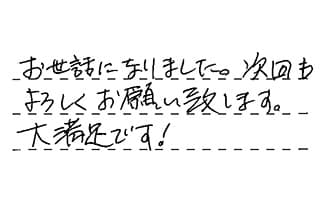 お世話になりました。次回も
よろしくお願い致します。
大満足です!